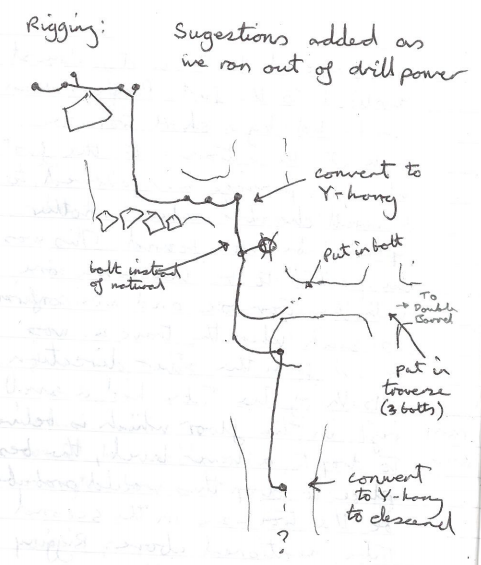 Rigging:
Sugestions added as
we ran out of drill power
convert to
Y-hang
bolt instead
of natural
put in bolt
→ To
Double
Barrel
put in
traverse
(3 bolts)
convert
to Y-hang
to descend
?